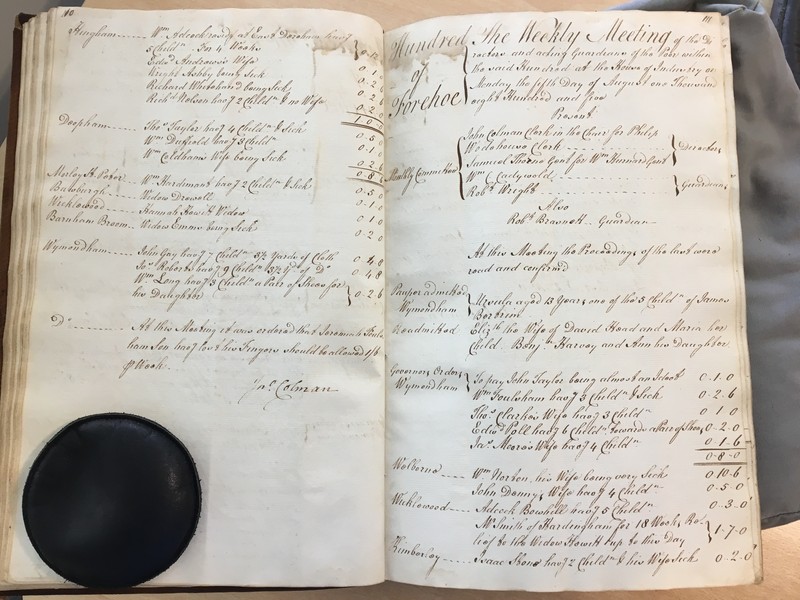 110
Hingham Wm. Adcock resides at East Dereham has 7
5 Childn. For 4 Weeks
Edwd. Andrews's Wife
Wright Ashby being Sick 0.1.0
Richard Whitehand being Sick 0.2.6
Richd. Nelson has 2 Childn. & no Wife 0.2.6
Deopham Thos. Taylor has 4 Childn. & Sick 0.5.0
Wm. Duffield has 5 Childn. 0.1.6
Wm. Coldhams Wife being Sick 0.2.6
0.8
Morley St. Peter Wm. Hardiment has 2 Childn. & Sick 0.5.0
Baburgh Widow Drewell 0.1.0
Wicklewood Hannah Howitt Widow 0.1.0
Barnham Broom Widow Emms being Sick 0.2.0
Wymondham John Gay has 7 Childn. 3½ Yards of Cloth 0.4.8
Jos. Roberts has 9 Childn. 3½ Yds. of Do. 0.4.8
Wm. Long has 5 Childn. a Pair of Shoes for
his Daughter 0.2.6
Do. At this Meeting it was ordered that Jeremiah
ham Son has lost his Fingers should be allowed 1/6
℔ Week.
Jno. Colman
111
Hundred of Forehoe
The Weekly Meeting of the Di
rectors and acting Guardians of the Poor within
the said Hundred at the House of Industry on
Monday the fifth Day of August one Thousand
eight Hundred and five
Present
Weekly Committee
John Colman Clerk in the Chair for Philip
Wodehouse Clerk
Samuel Thorne Gent for Wm. Gent
Directors
Wm.
Robt. Wright
Guardians
Also
Robt. Brasnett Guardian
At this Meeting the Proceedings of the last were
read and confirmed
Pauper admitted
Wymondham Ursula aged 13 Years one of the 5 Childn. of James
Bertram
Readmitted Elizth. the Wife of David Head and Maria her
Child. Benjn. Harvey and Ann his Daughter
Governors Orders
Wymondham To pay John Taylor being almost an Ideot 0-1-0
Wm. Foulsham has 3 Childn. & Sick 0-2-6
Thos. Clarke's Wife has 3 Childn. 0 1 0
Edwd. Poll has 6 Childn. towards a Pair of Shoes 0-2-0
Jas. Moore's Wife has 4 Childn. 0-1-6
0-8-0
Welborne Wm. Norton, his Wife being very Sick 0 10-6
John Denny's Wife has 4 Childn. 0-5-0
Wicklewood Adcock Bowhill has 5 Childn. 0-3-0
Mr Smith of Hardingham for 18 Weeks Re-
lief to the Widow Howitt up to this Day 1-7-0
Kimberley Isaac Stone has 2 Childn. & his Wife Sick 0-2-0